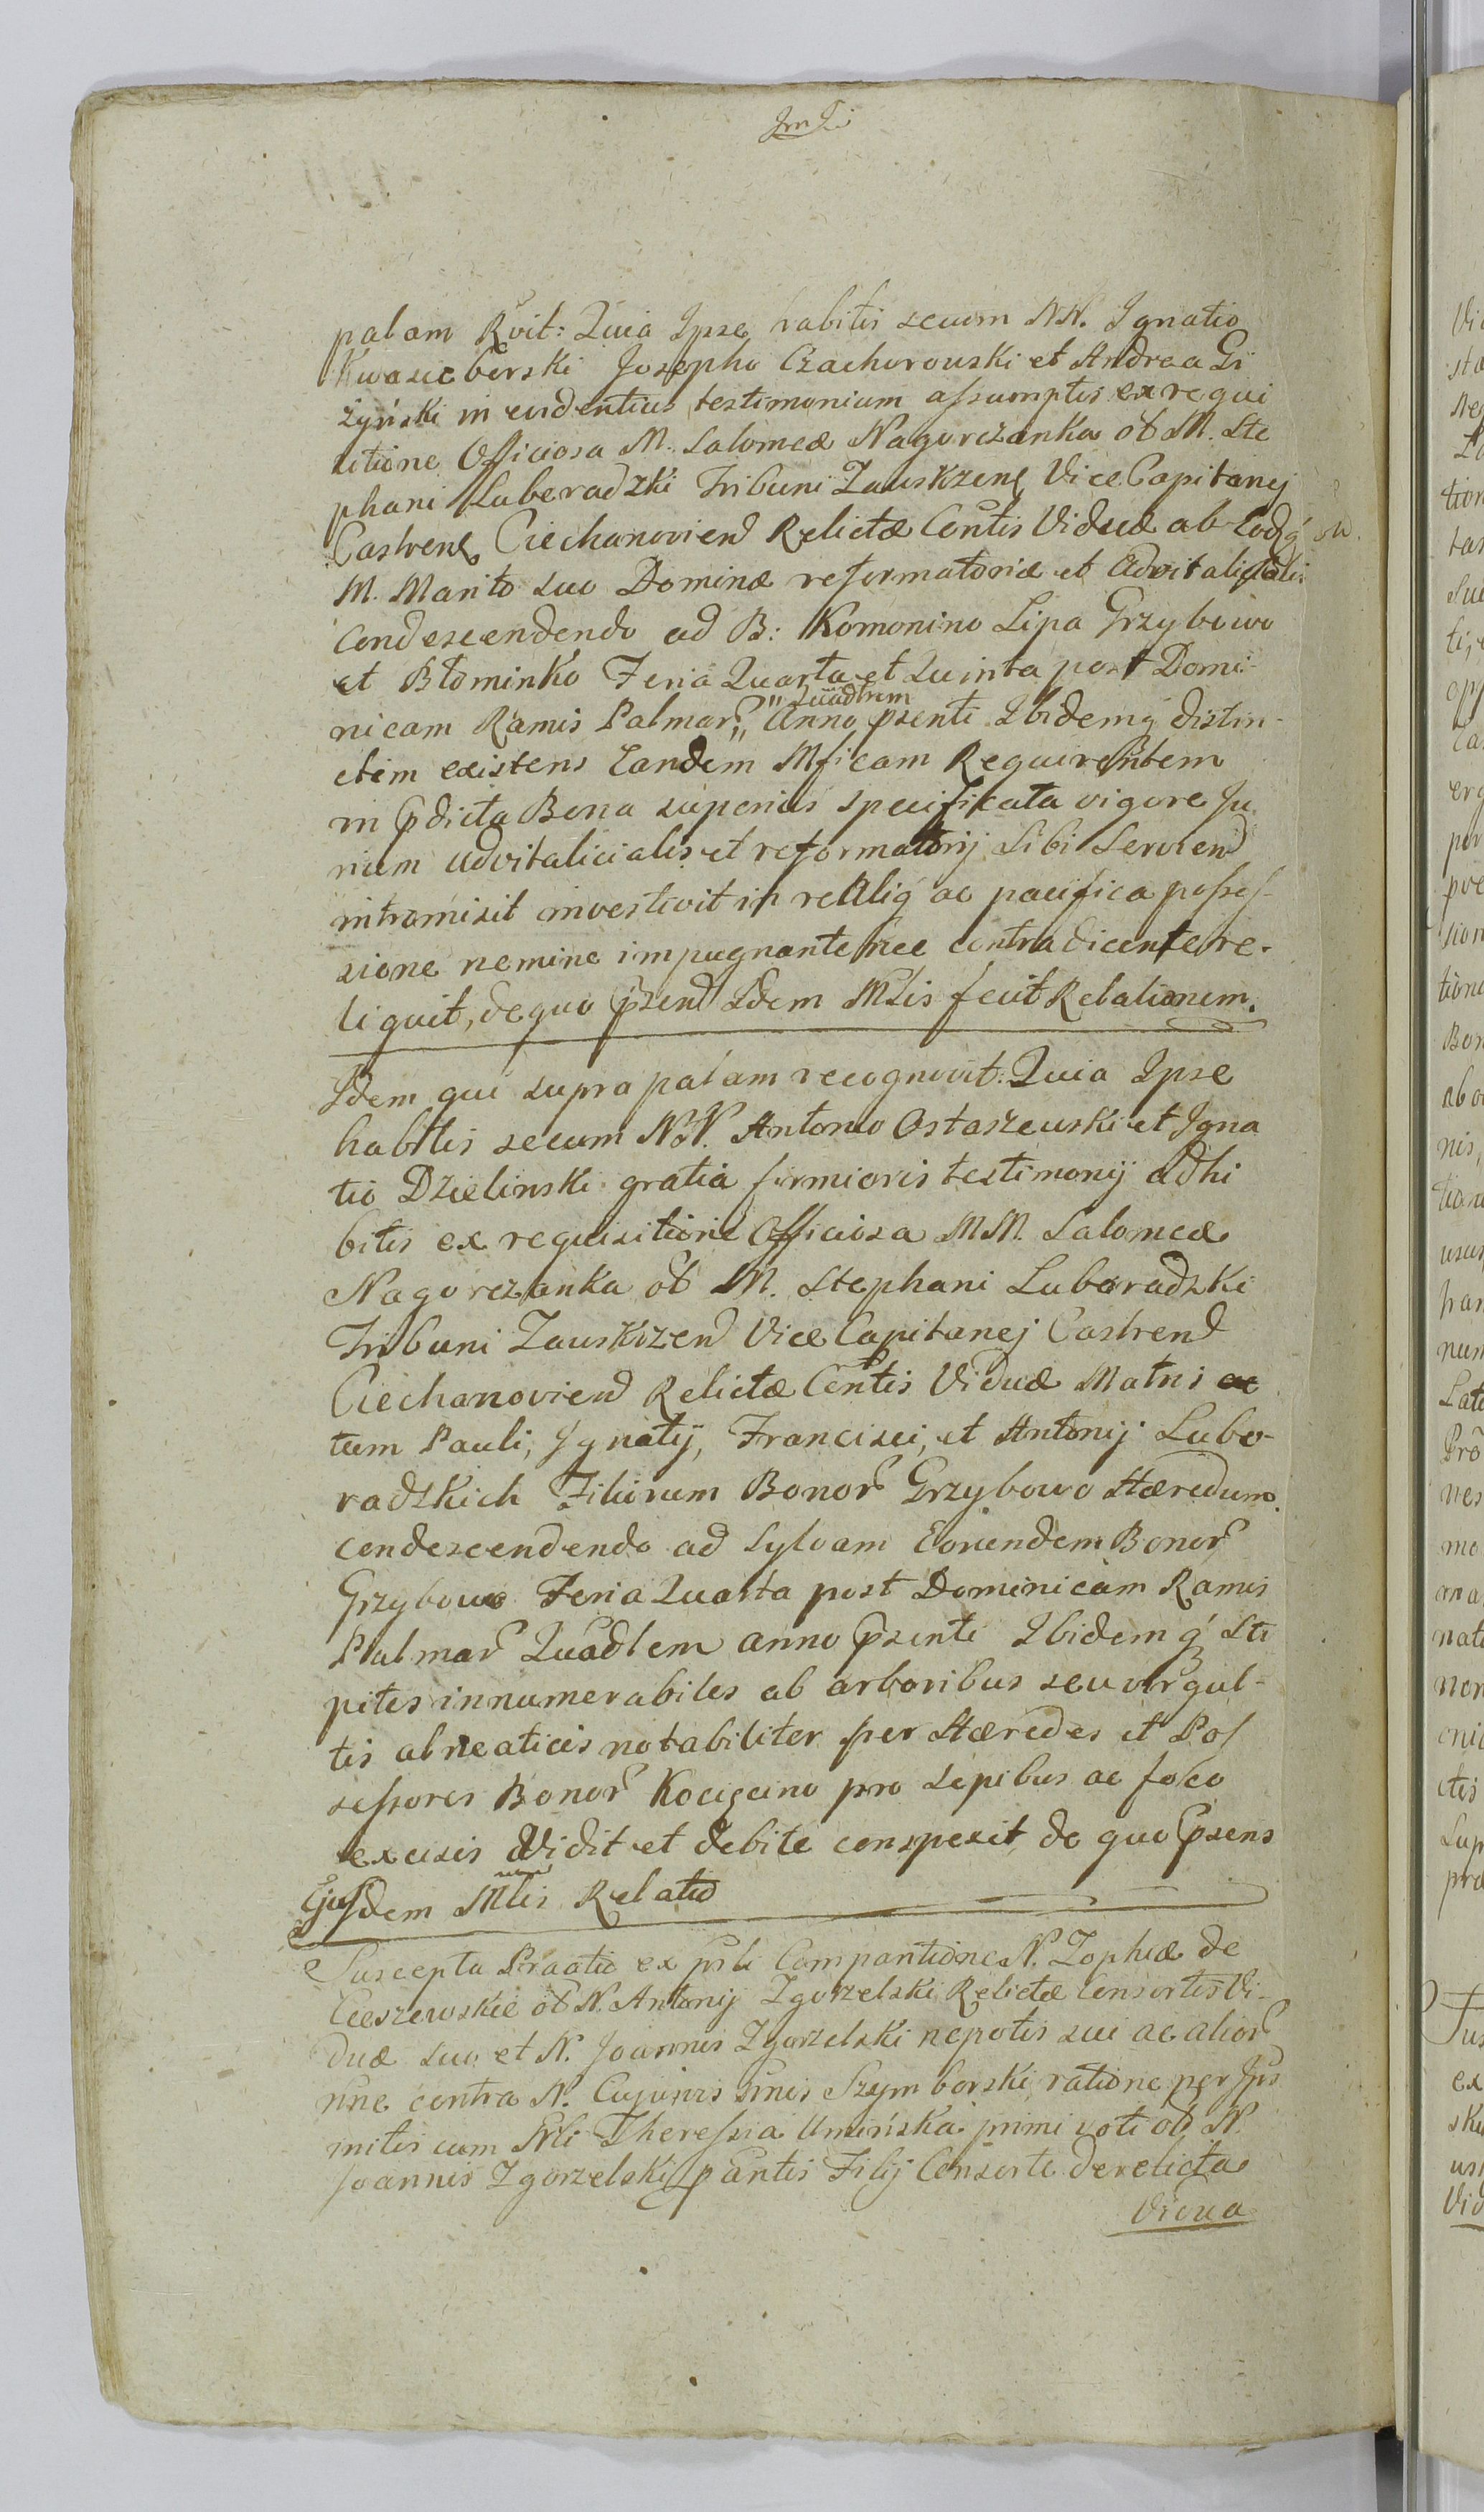 palam Rvit: Quia Ipse habitis secum NN. Ignatio
Josepho Czachorowski et Andrea Gi
żyński in evidentius testimonium assumptis ex requi
sitione Officiosa M. Salomeæ Nagorczanka ol M. Ste
phani Luberadzki Tribuni Zauskzen Vice Capitanej
Castren Ciechanovien Relictæ Contis Viduæ ab
M. Marito suo Dominæ reformatoriæ et Advitalitialis
Condescendendo ad B: Komonino Lipa Grzybowo
et Btominko Feria Quarta et Quinta post Domi-
nicam Ramis Palmar " Quadlrem " Anno psenti Ibidemq distin-
ctim existens Eandem Mficam Requirentem
in pdicta Bona superius specificata vigore Ju
rium advitalicialis et reformatorij Sibi Servien
intromisit investivit in realiq ac pacifica posses-
sione nemine impugnante nec contradicente re-
liquit, de quo psen Idem Mlis fecit Relationem.
Idem qui supra palam recognovit: Quia Ipse
habitis secum NN. Antonio Ostaszewski et Igna
tio Dzielinski gratia firmioris testimonij adhi
bitis ex requisitione Officiosa MM. Salomeæ
Nagorczanka ol M. Stephani Luboradzki
Tribuni Zauskrzen Vice Capitanej Castren
Ciechanovien Relictæ Contis Viduæ Matris ac
tum Pauli, Ignatij, Francisci, et Antonij Lubo-
radzkich Filiorum Bonor Grzybowo Hæredum
condescendendo ad Sylvam Eorundem Bonor
Grzybowo Feria Quarta post Dominicam Ramis
Palmar Quadlem anno psenti Ibidemq Sti
pites innumerabiles ab arboribus seu virgul-
tis alneaticis notabiliter per Hæredes et Pos
sessores Bonor Kocięcino pro Sepibus ac foco
excisis Vidit et debite conspexit de quo psens
Ejusdem Mlis Relatio
Suscepta ex psli Compartione N. Zophiæ de
Cieszewskie ol N. Antonij Zgorzelski Relictæ Consortis Vi-
duæ suo et N. Joannis Zgorzelski nepotis sui ac alior
nne contra N. Szymborski ratione per Ips
initis cum Nli Theressia Uminska primi voti ol N.
Joannis Zgorzelski pantis Filij Consorte derelicta
Vidua